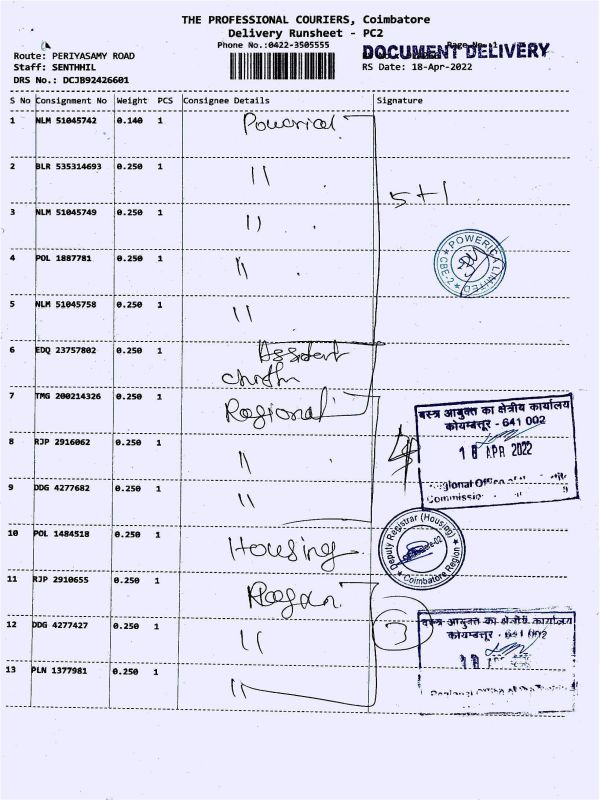 THE PROFESSIONAL COURIERS, Coimbatore
Delivery Runsheet - PC2
Phone No.:0422-3505555
Page No.:1
DOCUMENT DELIVERY
Route: PERIYASAMY ROAD
Staff: SENTHHIL
RS Date: 18-Apr-2022
DRS No.: DCJB92426601
S No Consignment No Weight PCS Consignee Details Signature
1 NLM 51045742 0.140 1
2 BLR 535314693 0.250 1 11
5+1
3 NLM 51045749 0.250 1 11
POWERICA LIMITED
CBE-2
4 POL 1887781 0.250 1 11
5 NLM 51045758 0.250 1 11
6 EDQ 23757802 0.250 1
7 TMG 200214326 0.250 1 Regional
वस्त्र आयुक्त का क्षेत्रीय कार्यालय
कोयम्बत्तूर - 641 002
18 APR 2022
8 RJP 2916062 0.250 1 11
9 DDG 4277682 0.250 1 11
10 POL 1484518 0.250 1 Housing
Deputy Registrar (Housing)
Coimbatore Region
11 RJP 2910655 0.250 1
12 DDG 4277427 0.250 1 11
3
वस्त्र आयुक्त का क्षेत्रीय कार्यालय
कोयम्बत्तूर - 641 002
13 PLN 1377981 0.250 1 11